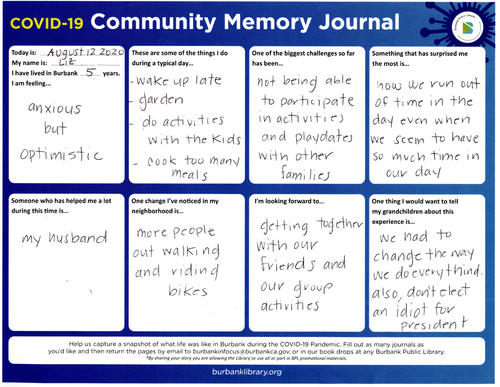 COVID-19 Community Memory Journal
Today is: August 12 2020
My name is: Liz
I have lived in Burbank 5 years.
I am feeling...
anxious
but
optimistic
These are some of the things I do
during a typical day...
- wake up late
- garden
- do activities
with the kids
- cook too many
meals
One of the biggest challenges so far
has been...
not being able
to participate
in activities
and playdates
with other
families
Something that has surprised me
the most is...
how we run out
of time in the
day even when
we seem to have
so much time in
our day
Someone who has helped me a lot
during this time is...
my husband
One change I've noticed in my
neighborhood is...
more people
out walking
and riding
bikes
I'm looking forward to...
getting together
with our
friends and
our group
activities
One thing I would want to tell
my grandchildren about this
experience is...
we had to
change the way
we do everything.
also, don't elect
an idiot for
president
Help us capture a snapshot of what life was like in Burbank during the COVID-19 Pandemic. Fill out as many journals as
you'd like and then return the pages by email to burbankinfocus@burbankca.gov; or in our book drops at any Burbank Public Library.
*By sharing your story you are allowing the Library to use all or part in BPL promotional materials.
burbanklibrary.org